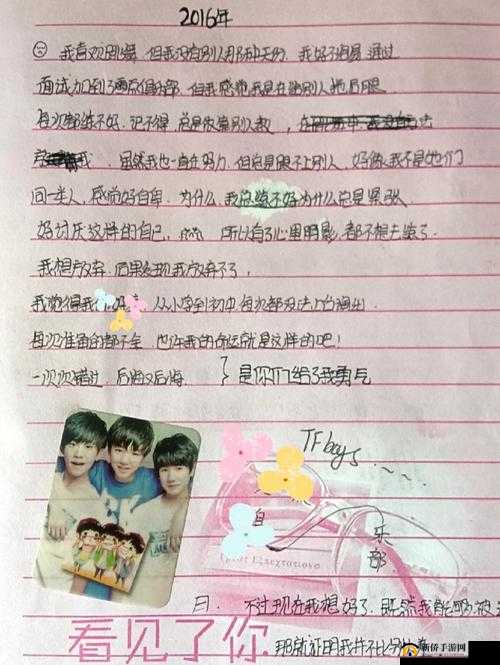 2016年
我喜欢跳舞,但我没有别人那种天份,我好不容易通过
面试加到了舞点俱乐部,但我感觉我是在跟别人拖后腿
每次都练不好,记不得,总是被别人教,在
我,虽然我也一直在努力,但总是跟不上别人,好像我不是她们
同一类人,感前好自卑,为什么,我总练不好为什么总是紧张
好讨厌这样的自己,所以有了心里阴影,都不想去练了.
我想放弃,后果发现我放弃不了,
我觉得我们 从小学到初中每次都没法上台演出.
每次准备的都不全,也许我的命运就是这样的吧!
一次次错过,后悔又后悔. } 是你们给了我勇气
TFboys
自
乐
部
曰: 不过现在我想好了,既然我能够被
看见了你
那就证明我并不比别
新侨手游网